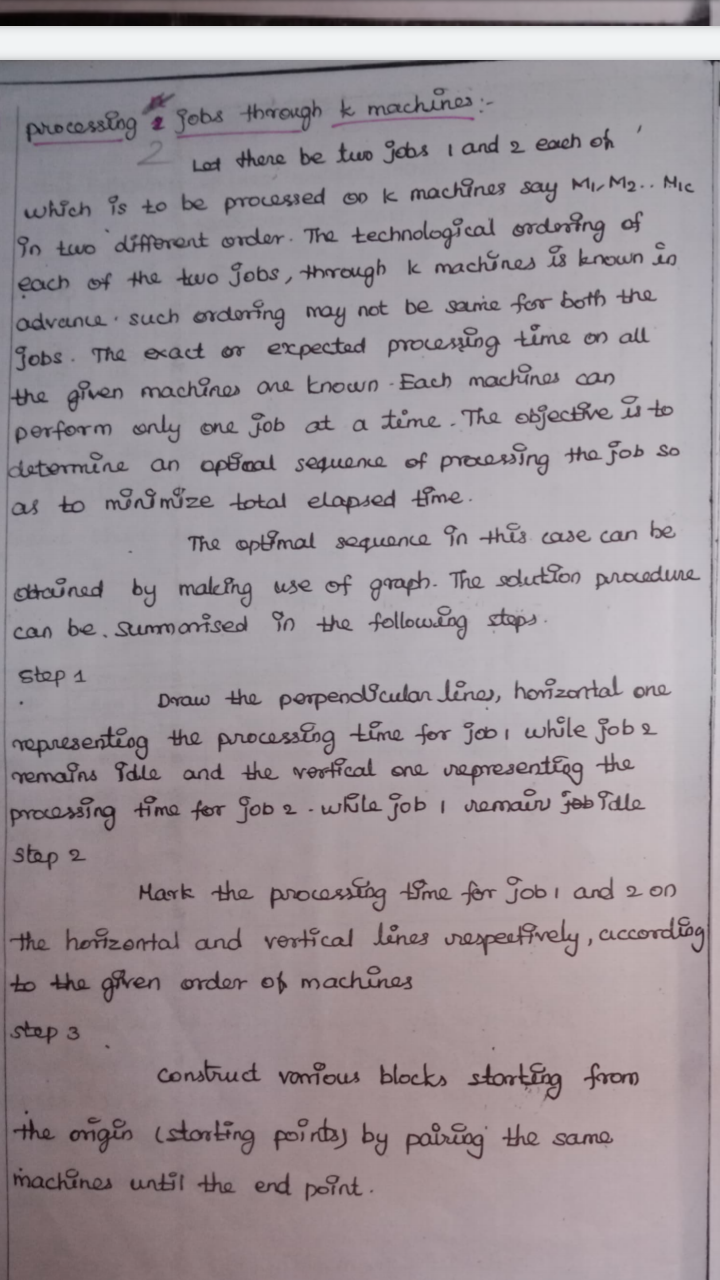 processing 2 jobs through k machines:-
2
Let there be two jobs 1 and 2 each of
which is to be processed on k machines say M1, M2.. Mk
in two different order. The technological ordering of
each of the two jobs, through k machines is known in
advance. such ordering may not be same for both the
jobs. The exact or expected processing time on all
the given machines are known. Each machines can
perform only one job at a time. The objective is to
determine an optimal sequence of processing the job so
as to minimize total elapsed time.
The optimal sequence in this case can be
obtained by making use of graph. The solution procedure
can be summarised in the following steps.
Step 1
Draw the perpendicular lines, horizontal one
representing the processing time for job 1 while job 2
remains idle and the vertical one representing the
processing time for job 2. while job 1 remain job idle
Step 2
Mark the processing time for job 1 and 2 on
the horizontal and vertical lines respectively, according
to the given order of machines
Step 3
Construct various blocks starting from
the origin (starting points) by pairing the same
machines until the end point.